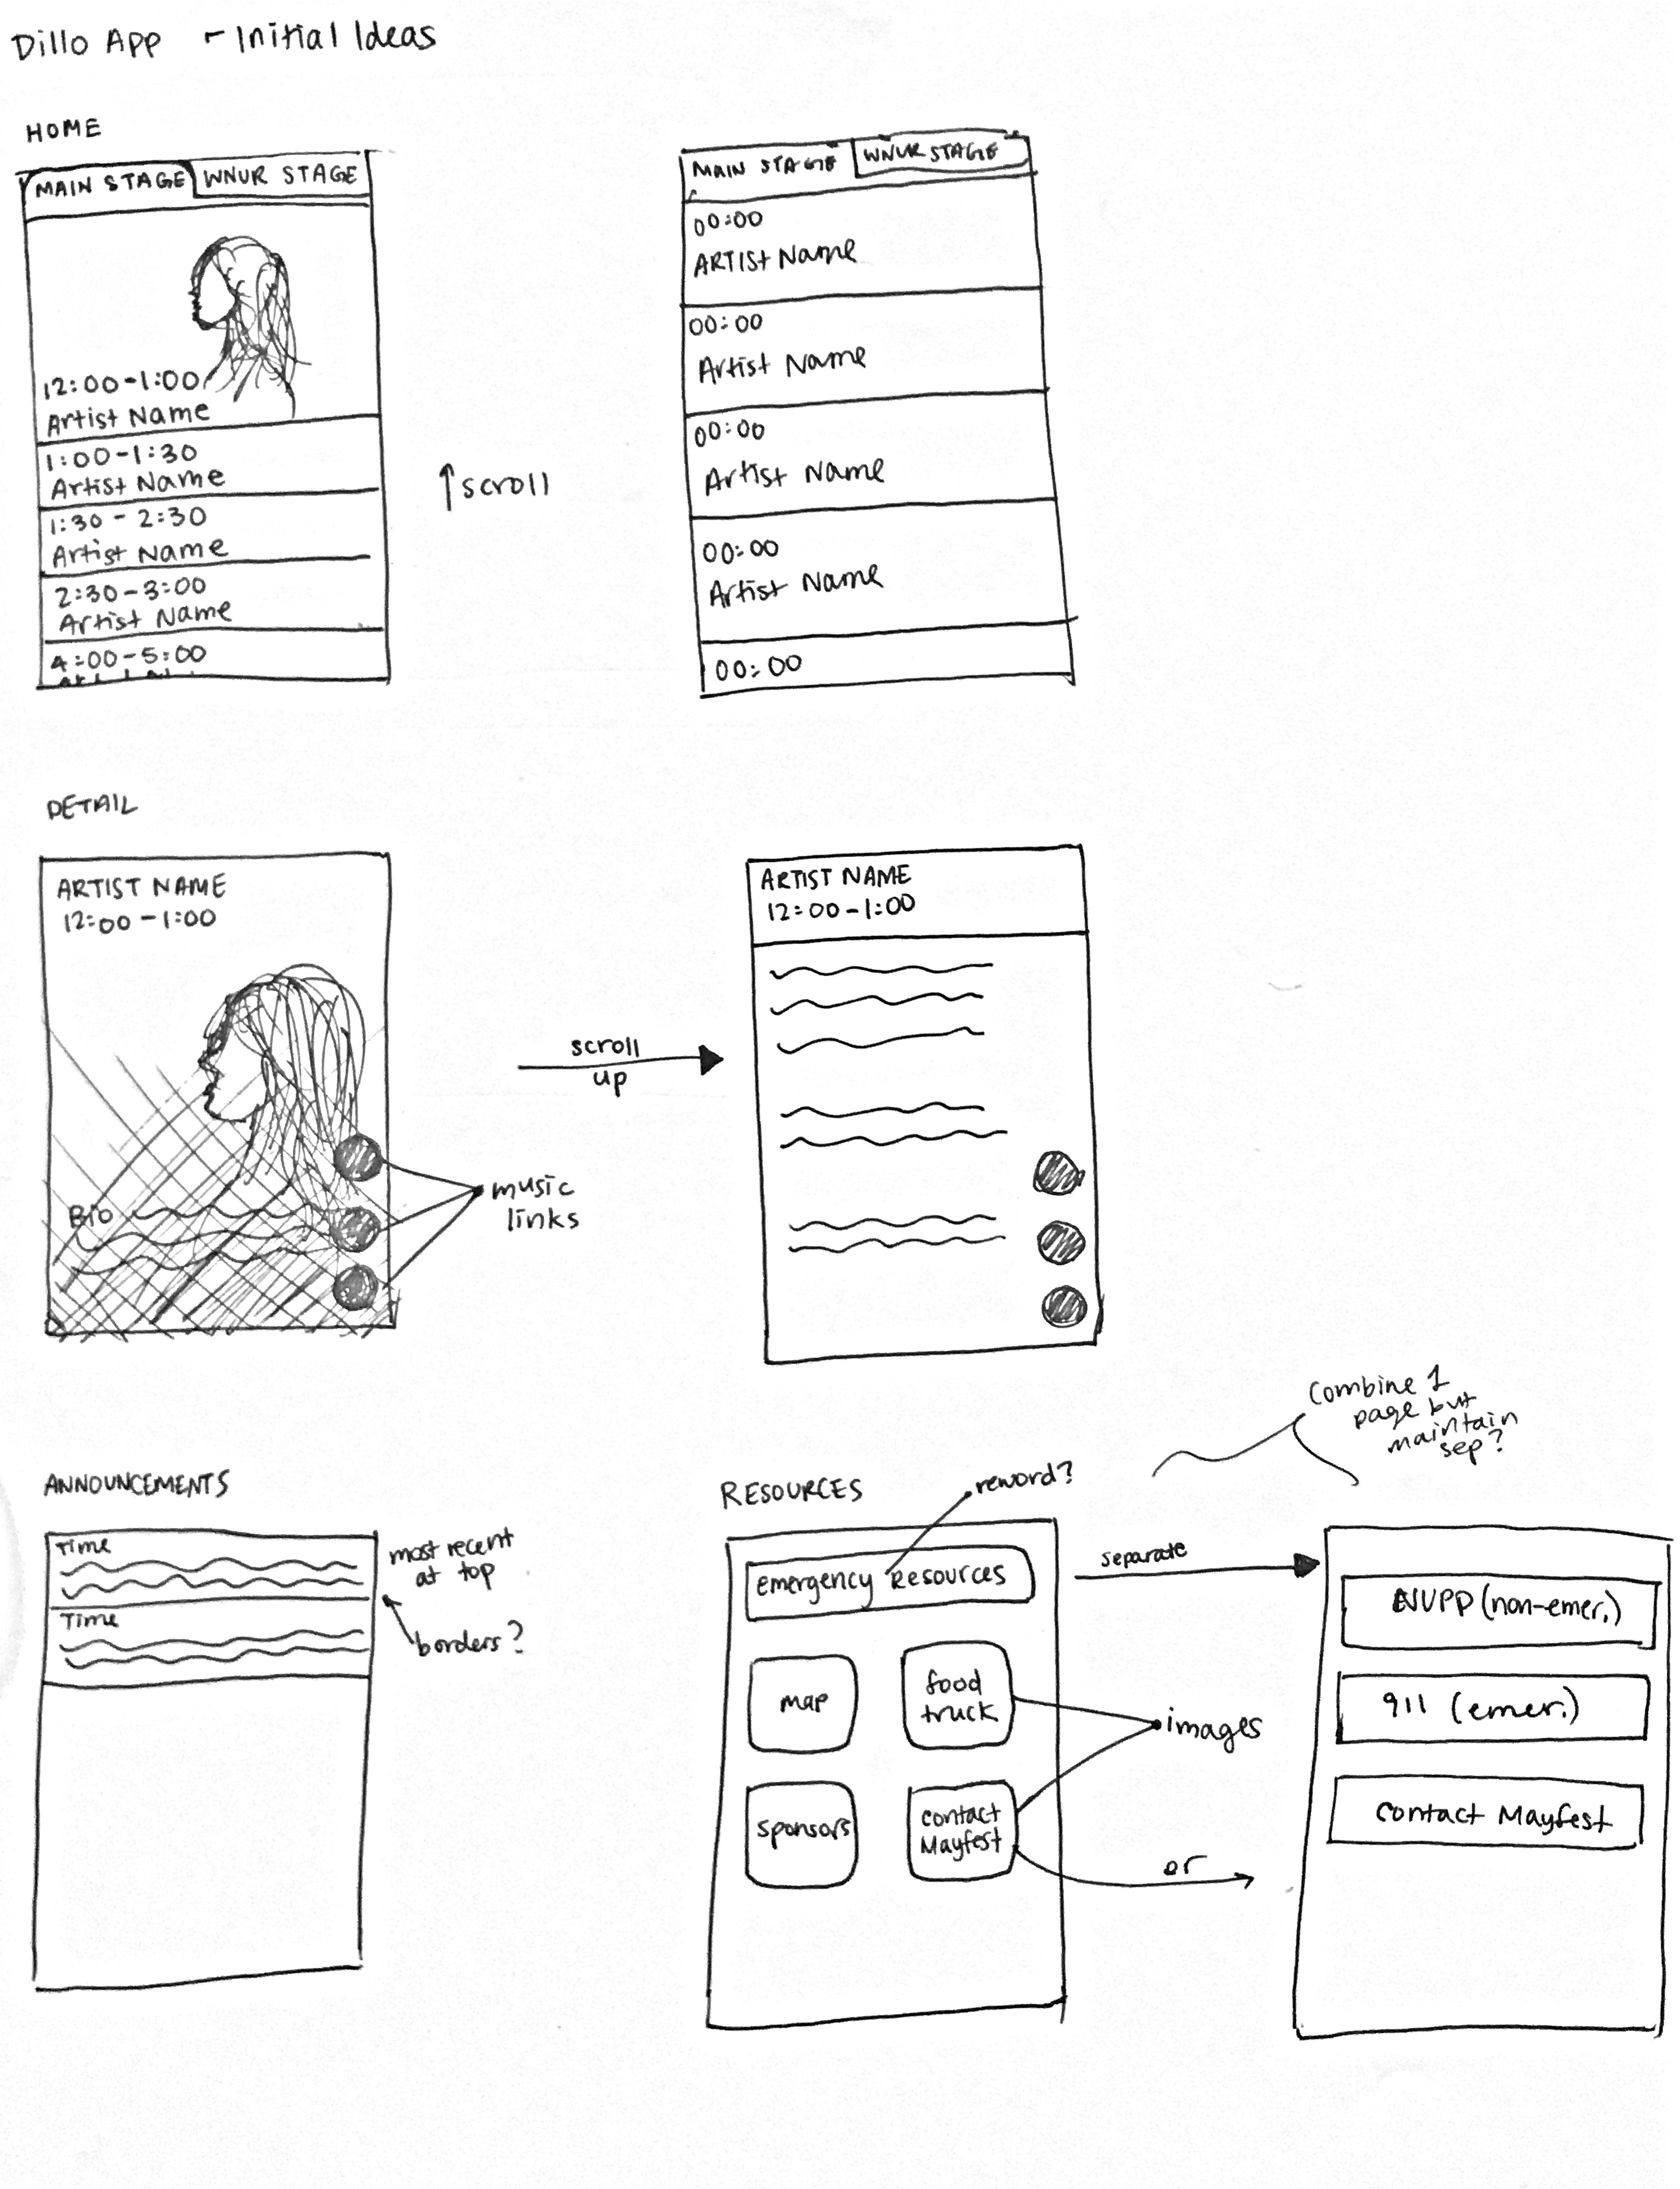 Dillo App - Initial Ideas
HOME
MAIN STAGE WNUR STAGE
12:00-1:00
Artist Name
1:00-1:30
Artist Name
1:30 - 2:30
Artist Name
2:30-3:00
Artist Name
4:00-5:00
↑scroll
MAIN STAGE WNUR STAGE
00:00
ARTIST Name
00:00
Artist Name
00:00
Artist Name
00:00
Artist Name
00:00
DETAIL
ARTIST NAME
12:00-1:00
Bio
music
links
scroll
up
ARTIST NAME
12:00-1:00
ANNOUNCEMENTS
Time
Time
most recent
at top
borders?
RESOURCES
reword?
Emergency Resources
map
food
truck
sponsors
contact
Mayfest
images
or
separate
Combine 1
page but
maintain
sep?
NUPD (non-emer.)
911 (emer.)
Contact Mayfest